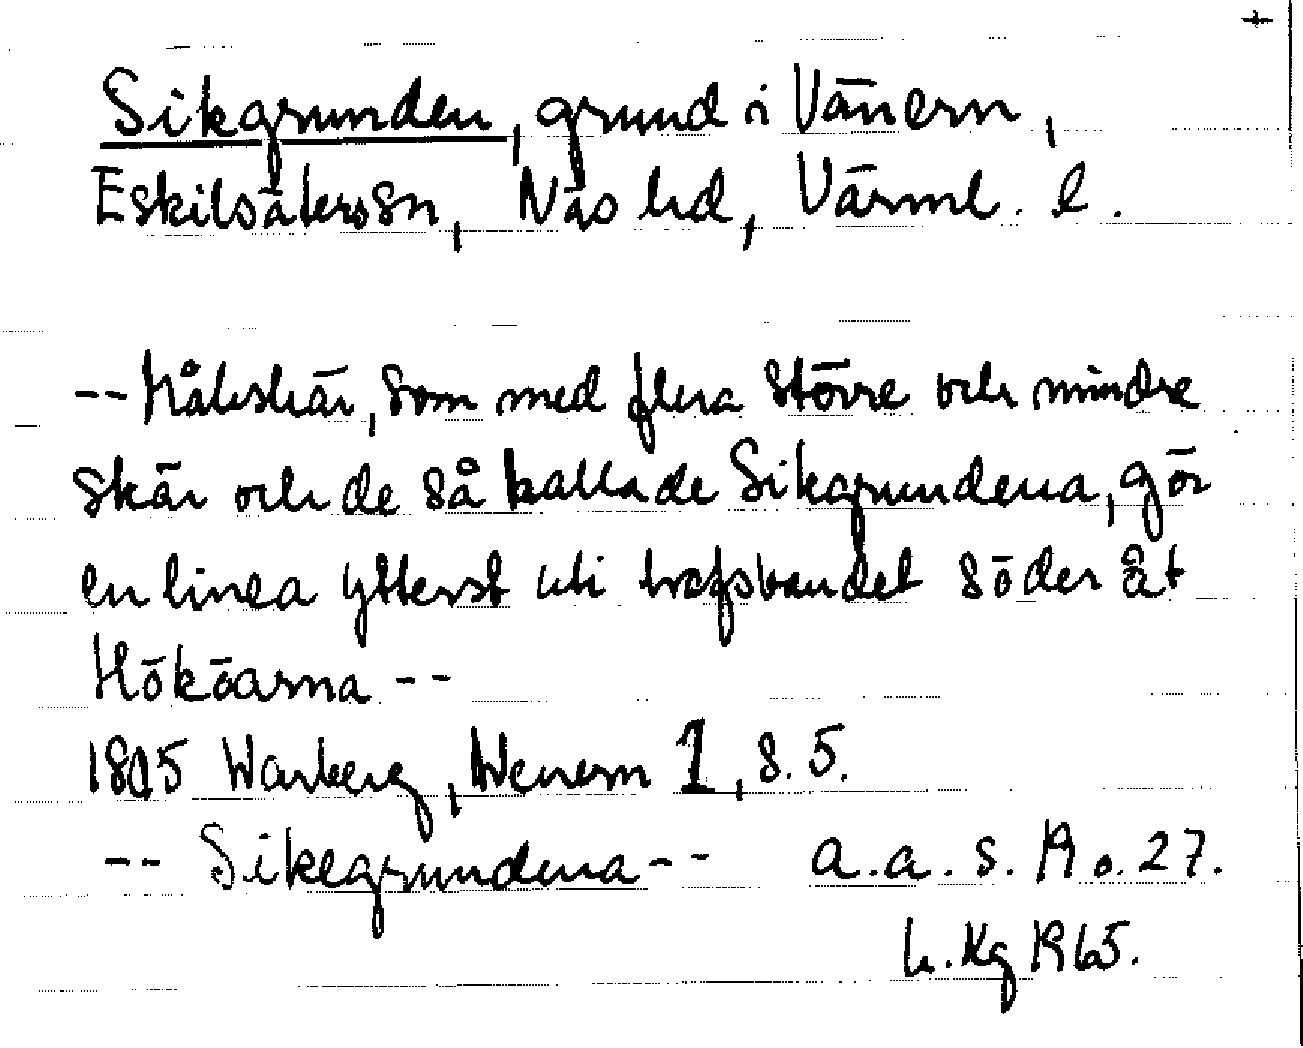 +
Sikgrunden, grund i Vänern,
Eskilsäterssn, Näs hd, Värml. l.
-- Kålskär, som med flera större och mindre
skär och de så kallade Sikgrundena, gör
en linea ytterst uti hafsbandet söder åt
Hököarna --
Warberg, Wenern 1, s. 5.
-- Sikegrundena -- a.a. s. 19 o. 27.
Kg 1965.